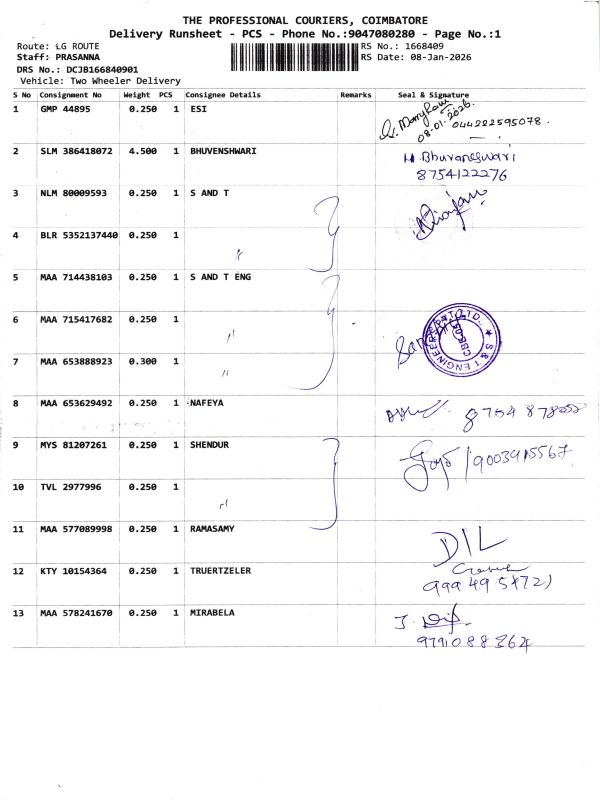 THE PROFESSIONAL COURIERS, COIMBATORE
Delivery Runsheet - PCS - Phone No.:9047080280 - Page No.:1
Route: LG ROUTE RS No.: 1668409
Staff: PRASANNA RS Date: 08-Jan-2026
DRS No.: DCJB166840901
Vehicle: Two Wheeler Delivery
S No Consignment No Weight PCS Consignee Details Remarks Seal & Signature
1 GMP 44895 0.250 1 ESI
08-01-2026.
044222595078.
2 SLM 386418072 4.500 1 BHUVENSHWARI M. Bhuvaneswari
8754122276
3 NLM 80009593 0.250 1 S AND T
4 BLR 5352137440 0.250 1
〃
5 MAA 714438103 0.250 1 S AND T ENG
6 MAA 715417682 0.250 1
〃
S & T ENGINEERS PVT. LTD.
7 MAA 653888923 0.300 1
〃
8 MAA 653629492 0.250 1 NAFEYA
9 MYS 81207261 0.250 1 SHENDUR
10 TVL 2977996 0.250 1
〃
11 MAA 577089998 0.250 1 RAMASAMY DIL
12 KTY 10154364 0.250 1 TRUERTZELER
13 MAA 578241670 0.250 1 MIRABELA J.
9791088362